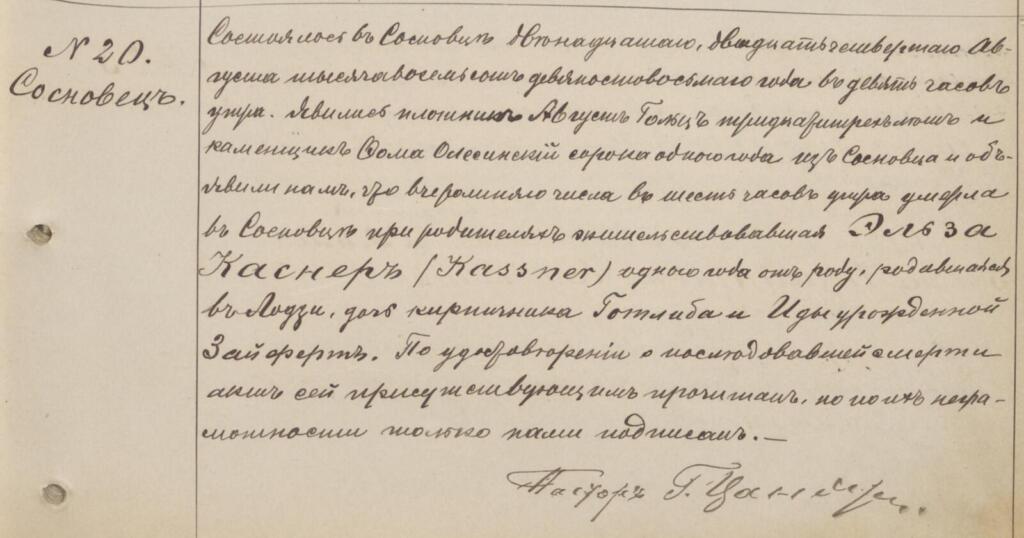 N 20.
Сосновецъ.
Состоялось въ Сосновцѣ двѣнадцатаго, двадцать четвертаго Ав-
густа тысяча восемьсотъ девяносто восьмаго года въ девять часовъ
утра. Явились плотникъ Августъ тридцати трехъ лѣтъ и
каменщикъ Ѳома Олесинскій сорока одного года изъ Сосновца и объ-
явили намъ, что вчерашняго числа въ шесть часовъ утра умерла
въ Сосновцѣ при родителяхъ жительствовавшая Эльза
Каснеръ (Kassner) одного года отъ роду, родившаяся
въ Лодзи, дочь кирпичника Готлиба и Иды урожденной
Зайфертъ. По удостовѣреніи о послѣдовавшей смерти
актъ сей присутствующимъ прочитанъ, но по ихъ негра-
мотности только нами подписанъ. —
Пасторъ Г.